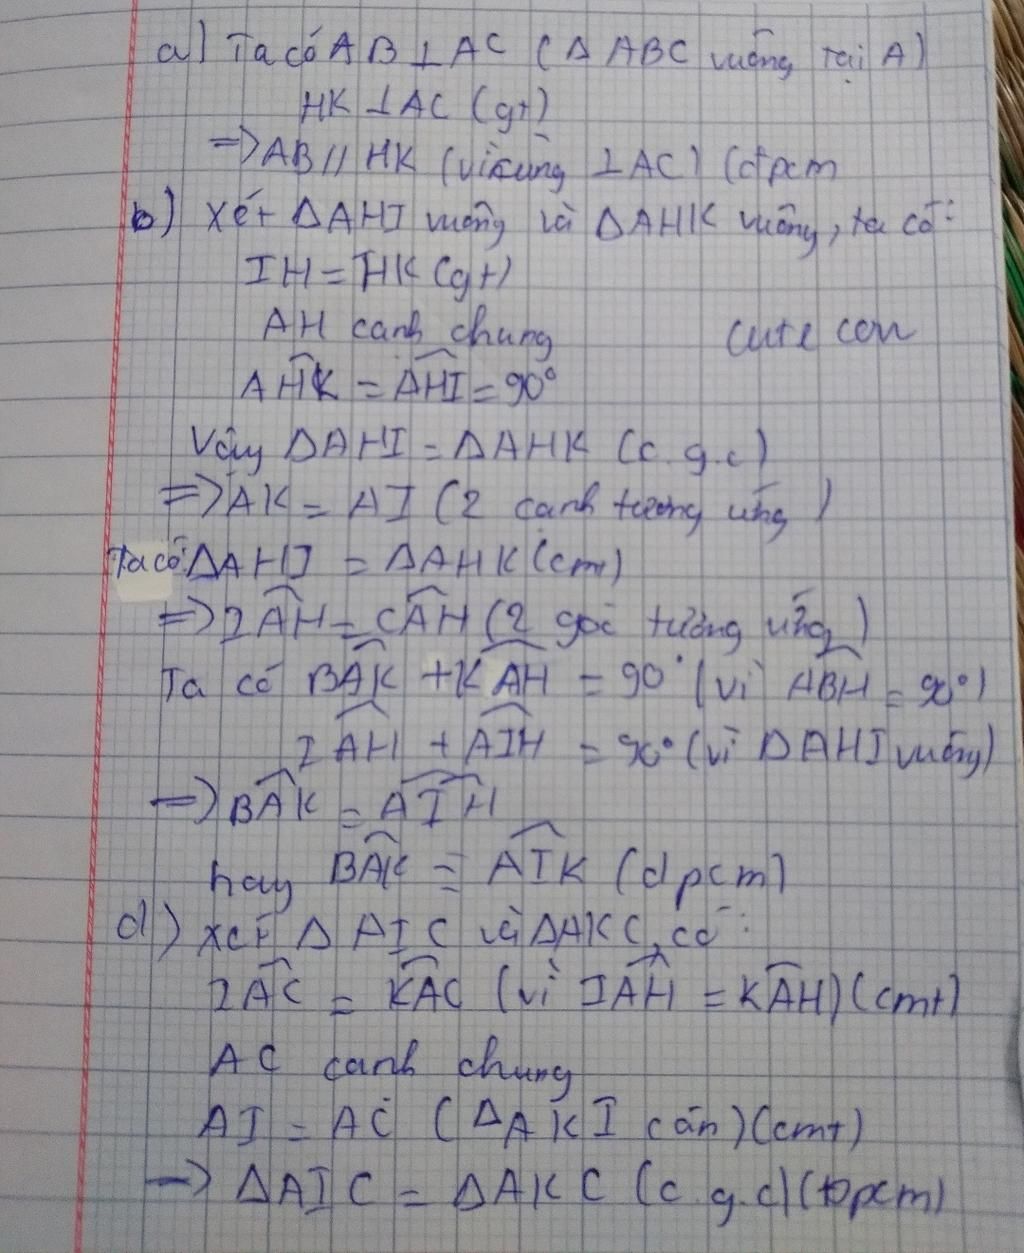 a) Ta có AB ⊥ AC (Δ ABC vuông tại A)
HK ⊥ AC (gt)
=> AB // HK (vì cùng ⊥ AC) (đpcm
b) Xét ΔAHI vuông và ΔAHK vuông, ta có:
IH = HK (gt)
AH cạnh chung
cute con
AĤK = AĤI = 90°
Vậy ΔAHI = ΔAHK (c.g.c)
=> AK = AI (2 cạnh tương ứng)
Ta có: ΔAHI = ΔAHK (cmt)
=> IÂH = CÂH (2 góc tương ứng)
Ta có BÂK + KÂH = 90° (vì ABH = 90°)
IÂH + AIH = 90° (vì ΔAHI vuông)
=> BÂK = AÎH
hay BÂK = AÎK (đpcm)
d) Xét Δ AIC và ΔAKC, có:
IÂC = KÂC (vì IÂH = KÂH) (cmt)
AC cạnh chung
AI = AC (ΔAKI cân) (cmt)
=> ΔAIC = ΔAKC (c.g.c) (đpcm)